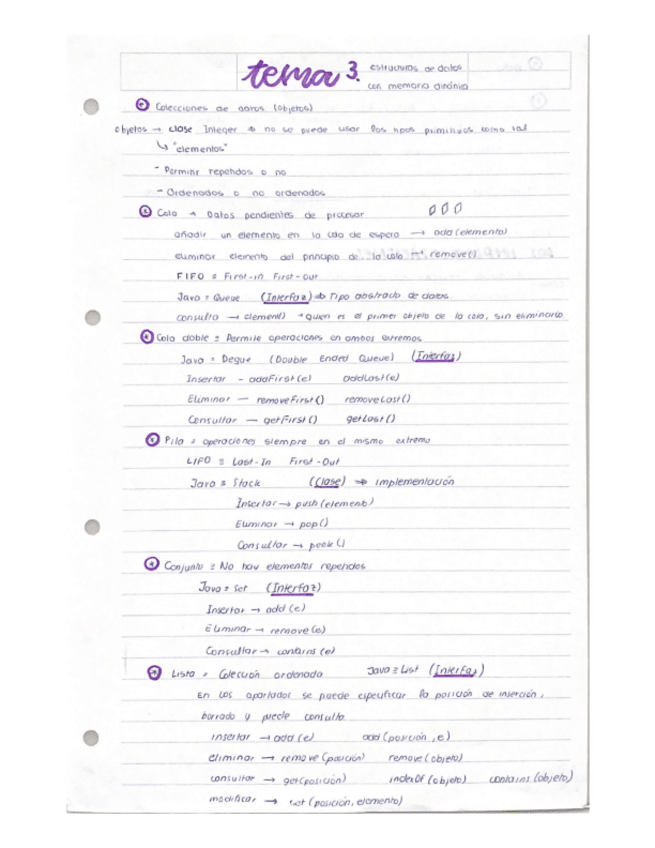 tema 3. estructuras de datos
con memoria dinámica
Colecciones de datos (objetos)
objetos → clase Integer → no se puede usar los tipos primitivos como tal
↳ "elementos"
- Permitir repetidos o no
- Ordenados o no ordenados
Cola → Datos pendientes de procesar
añadir un elemento en la cola de espera → add(elemento)
eliminar elemento del principio de la cola → remove()
FIFO = First-in First-out
Java = Queue (Interfaz) ⇒ Tipo abstracto de datos
consulta → element() → Quien es el primer objeto de la cola, sin eliminarlo
Cola doble = Permite operaciones en ambos extremos
Java = Deque (Double Ended Queue) (Interfaz)
Insertar - addFirst(e) addLast(e)
Eliminar — removeFirst() removeLast()
Consultar — getFirst() getLast()
Pila = operaciones siempre en el mismo extremo
LIFO = Last-In First-Out
Java = Stack (Clase) ⇒ implementación
Insertar → push(elemento)
Eliminar → pop()
Consultar → peek()
Conjunto = No hay elementos repetidos
Java = Set (Interfaz)
Insertar → add(e)
Eliminar → remove(e)
Consultar → contains(e)
Lista = Colección ordenada Java = List (Interfaz)
En los apartados se puede especificar la posición de inserción,
borrado y puede consulta
insertar → add(e) add(posición, e)
eliminar → remove(posición) remove(objeto)
consultar → get(posición) indexOf(objeto) contains(objeto)
modificar → set(posición, elemento)